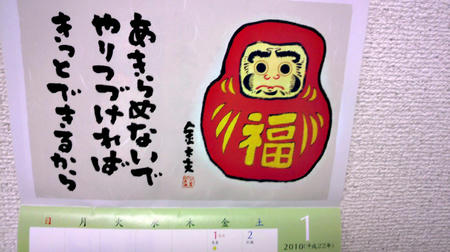 あきらめないで
やりつづければ
きっとできるから
福
日 月 火 水 木 金 土
1
2
1
2010(平成22年)